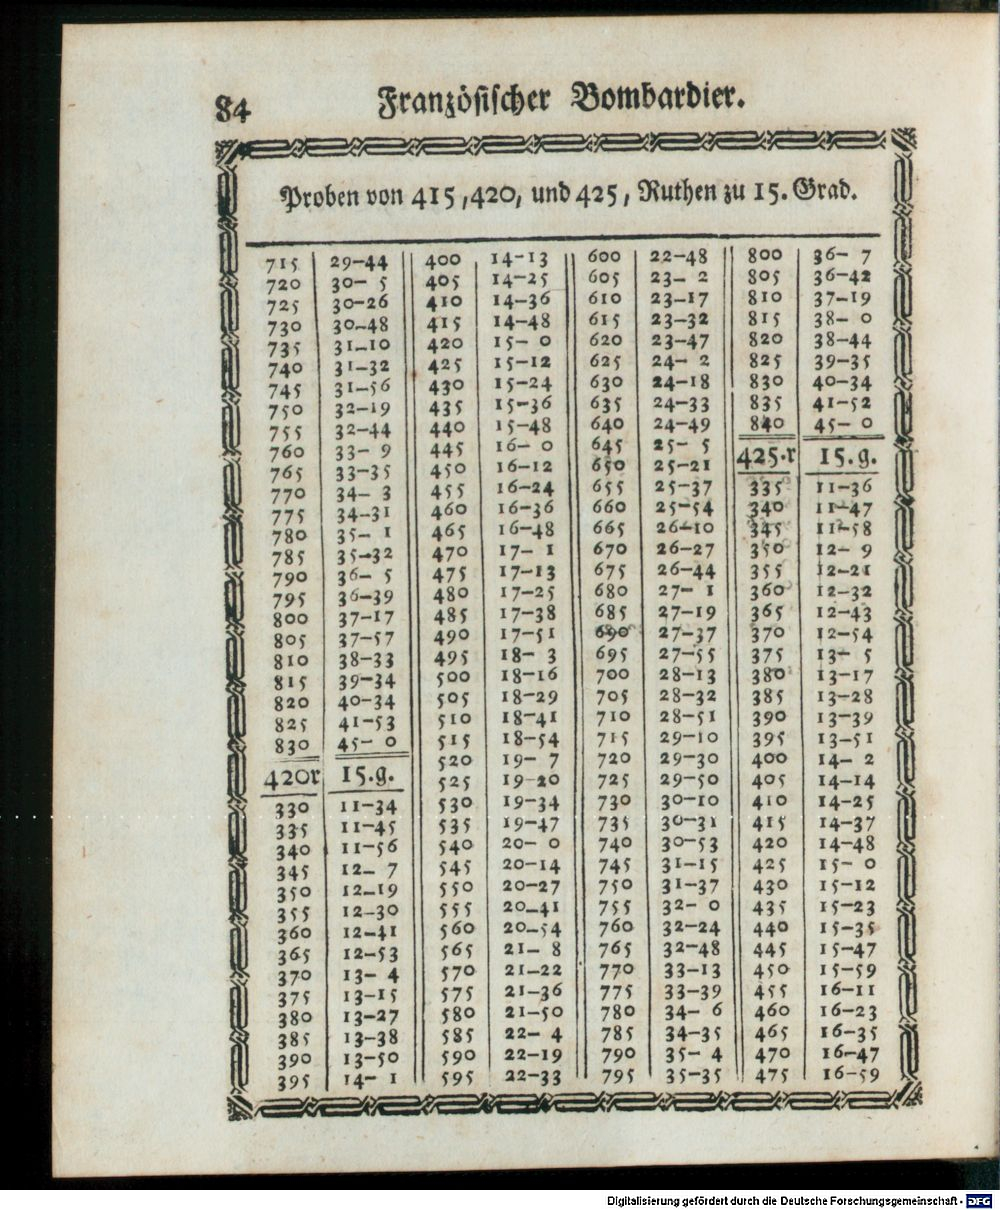 84 Französischer Bombardier.
Proben von 415, 420, und 425, Ruthen zu 15. Grad.
715 29-44
720 30- 5
725 30-26
730 30-48
735 31-10
740 31-32
745 31-56
750 32-19
755 32-44
760 33- 9
765 33-35
770 34- 3
775 34-31
780 35- 1
785 35-32
790 36- 5
795 36-39
800 37-17
805 37-57
810 38-33
815 39-34
820 40-34
825 41-53
830 45- 0
420r 15.g.
330 11-34
335 11-45
340 11-56
345 12- 7
350 12-19
355 12-30
360 12-41
365 12-53
370 13- 4
375 13-15
380 13-27
385 13-38
390 13-50
395 14- 1
400 14-13
405 14-25
410 14-36
415 14-48
420 15- 0
425 15-12
430 15-24
435 15-36
440 15-48
445 16- 0
450 16-12
455 16-24
460 16-36
465 16-48
470 17- 1
475 17-13
480 17-25
485 17-38
490 17-51
495 18- 3
500 18-16
505 18-29
510 18-41
515 18-54
520 19- 7
525 19-20
530 19-34
535 19-47
540 20- 0
545 20-14
550 20-27
555 20-41
560 20-54
565 21- 8
570 21-22
575 21-36
580 21-50
585 22- 4
590 22-19
595 22-33
600 22-48
605 23- 2
610 23-17
615 23-32
620 23-47
625 24- 2
630 24-18
635 24-33
640 24-49
645 25- 5
650 25-21
655 25-37
660 25-54
665 26-10
670 26-27
675 26-44
680 27- 1
685 27-19
690 27-37
695 27-55
700 28-13
705 28-32
710 28-51
715 29-10
720 29-30
725 29-50
730 30-10
735 30-31
740 30-53
745 31-15
750 31-37
755 32- 0
760 32-24
765 32-48
770 33-13
775 33-39
780 34- 6
785 34-35
790 35- 4
795 35-35
800 36- 7
805 36-42
810 37-19
815 38- 0
820 38-44
825 39-35
830 40-34
835 41-52
840 45- 0
425.r 15.g.
335 11-36
340 11-47
345 11-58
350 12- 9
355 12-21
360 12-32
365 12-43
370 12-54
375 13- 5
380 13-17
385 13-28
390 13-39
395 13-51
400 14- 2
405 14-14
410 14-25
415 14-37
420 14-48
425 15- 0
430 15-12
435 15-23
440 15-35
445 15-47
450 15-59
455 16-11
460 16-23
465 16-35
470 16-47
475 16-59
Digitalisierung gefördert durch die Deutsche Forschungsgemeinschaft - DFG